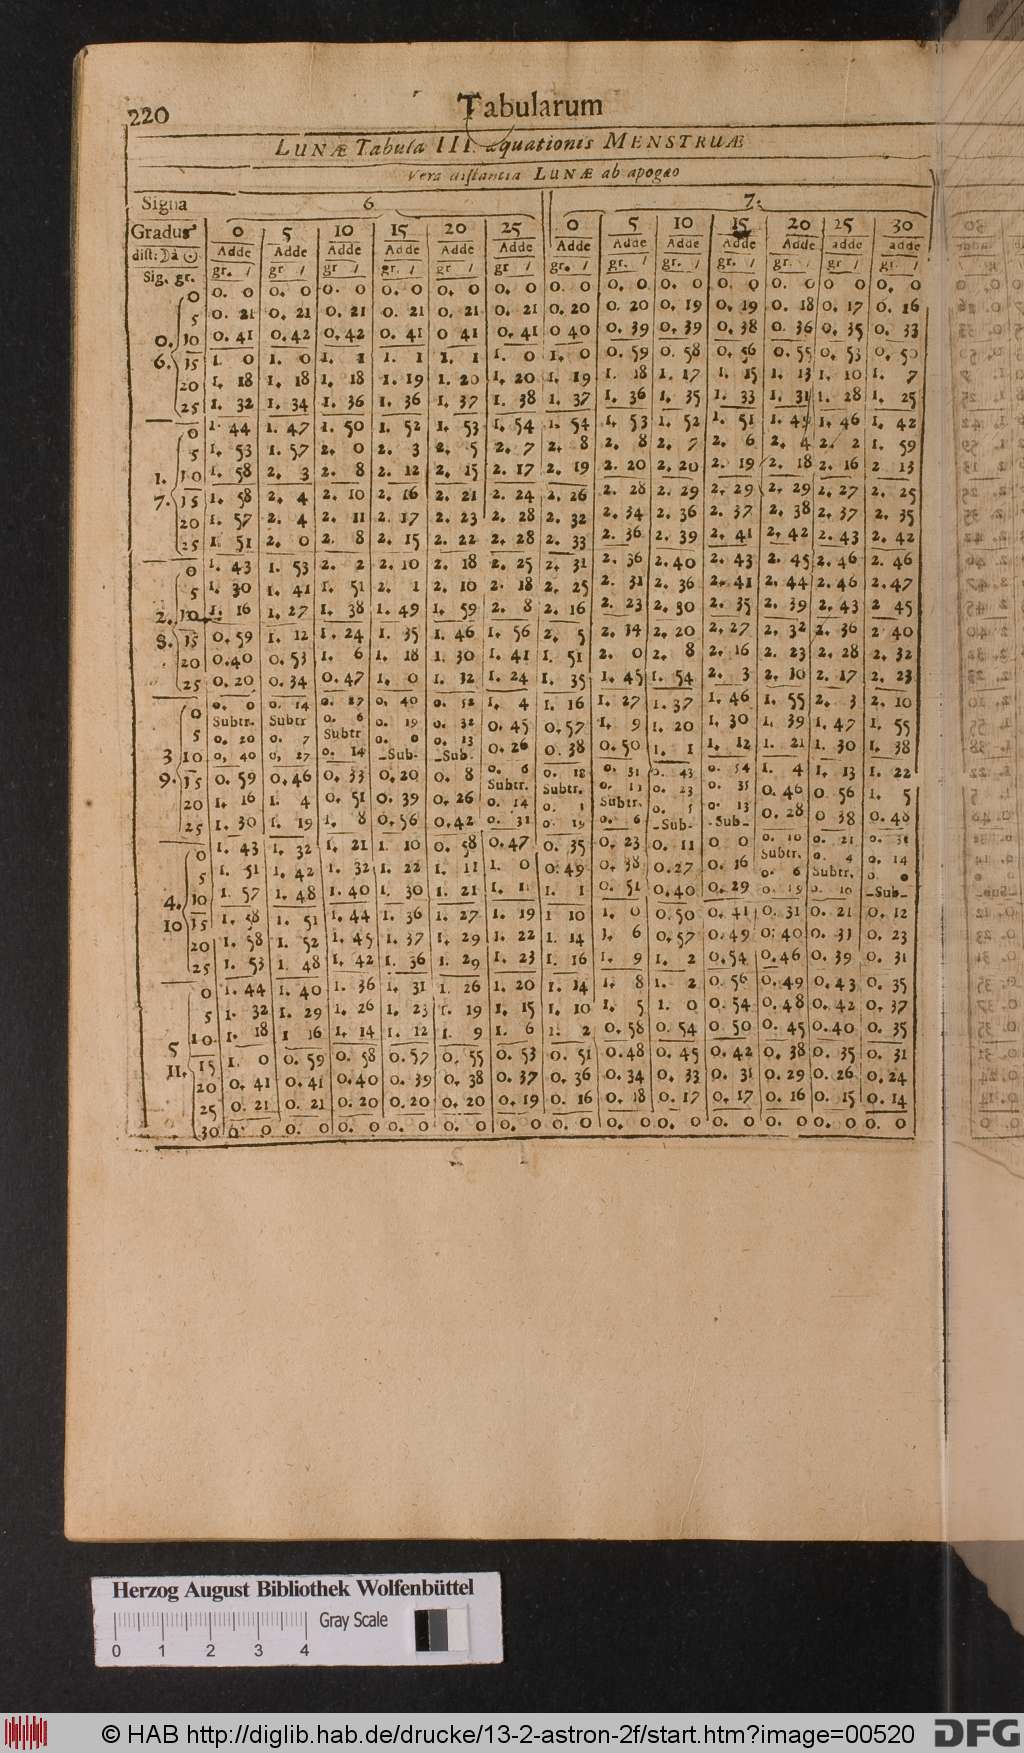 220 Tabularum
LUNÆ Tabula III. æquationis MENSTRUÆ
Vera distantia LUNÆ ab apogæo
Signa 6 7.
Gradus 0 5 10 15 20 25 0 5 10 15 20 25 30
dist: ☽ à ☉ Adde Adde Adde Adde Adde Adde Adde Adde Adde Adde Adde adde adde
Sig. gr. gr. / gr / gr / gr. / gr / gr / gr. / gr. / gr. / gr. / gr. / gr / gr. /
0 0. 0 0. 0 0. 0 0. 0 0. 0 0. 0 0. 0 0. 0 0. 0 0. 0 0. 0 0 0 0. 0
5 0. 21 0. 21 0. 21 0. 21 0. 21 0. 21 0. 20 0. 20 0. 19 0. 19 0. 18 0. 17 0. 16
0. 10 0. 41 0. 42 0. 42 0. 41 0 41 0. 41 0 40 0. 39 0. 39 0. 38 0. 36 0. 35 0. 33
6. 15 1. 0 1. 0 1. 1 1. 1 1. 1 1. 0 1. 0 0. 59 0. 58 0. 56 0. 55 0. 53 0. 50
20 1. 18 1. 18 1. 18 1. 19 1. 20 1. 20 1. 19 1. 18 1. 17 1. 15 1. 13 1. 10 1. 7
25 1. 32 1. 34 1. 36 1. 36 1. 37 1. 38 1. 37 1. 36 1. 35 1. 33 1. 31 1. 28 1. 25
0 1. 44 1. 47 1. 50 1. 52 1. 53 1. 54 1. 54 1. 53 1. 52 1. 51 1. 49 1. 46 1. 42
5 1. 53 1. 57 2. 0 2. 3 2. 5 2. 7 2. 8 2. 8 2. 7 2. 6 2. 4 2. 2 1. 59
1. 10 1. 58 2. 3 2. 8 2. 12 2. 15 2. 17 2. 19 2. 20 2. 20 2. 19 2. 18 2. 16 2 13
7. 15 1. 58 2. 4 2. 10 2. 16 2. 21 2. 24 2. 26 2. 28 2. 29 2. 29 2. 29 2. 27 2. 25
20 1. 57 2. 4 2. 11 2. 17 2. 23 2. 28 2. 32 2. 34 2. 36 2. 37 2. 38 2. 37 2. 35
25 1. 51 2. 0 2. 8 2. 15 2. 22 2. 28 2. 33 2. 36 2. 39 2. 41 2. 42 2. 43 2. 42
0 1. 43 1. 53 2. 2 2. 10 2. 18 2. 25 2. 31 2. 36 2. 40 2. 43 2. 45 2. 46 2. 46
5 1. 30 1. 41 1. 51 2. 1 2. 10 2. 18 2. 25 2. 31 2. 36 2. 41 2. 44 2. 46 2. 47
2. 10 1. 16 1. 27 1. 38 1. 49 1. 59 2. 8 2. 16 2. 23 2. 30 2. 35 2. 39 2. 43 2 45
8. 15 0. 59 1. 12 1. 24 1. 35 1. 46 1. 56 2. 5 2. 14 2. 20 2. 27 2. 32 2. 36 2 40
20 0. 40 0. 53 1. 6 1. 18 1. 30 1. 41 1. 51 2. 0 2. 8 2. 16 2. 23 2. 28 2. 32
25 0. 20 0. 34 0. 47 1. 0 1. 12 1. 24 1. 35 1. 45 1. 54 2. 3 2. 10 2. 17 2. 23
0 0. 0 0. 14 0. 27 0. 40 0. 52 1. 4 1. 16 1. 27 1. 37 1. 46 1. 55 2. 3 2. 10
Subtr. Subtr
5 0. 20 0. 7 0. 6 Subtr 0. 19 0. 32 0. 45 0. 57 1. 9 1. 20 1. 30 1. 39 1. 47 1. 55
3 10 0. 40 0. 27 0. 14 0. 0 Sub. 0. 13 Sub. 0. 26 0. 38 0. 50 1. 1 1. 12 1. 21 1. 30 1. 38
9. 15 0. 59 0. 46 0. 33 0. 20 0. 8 0. 6 Subtr. 0. 18 Subtr. 0. 31 0. 43 0. 54 1. 4 1. 13 1. 22
20 1. 16 1. 4 0. 51 0. 39 0. 26 0. 14 0. 1 0. 13 Subtr. 0. 23 0. 35 0. 46 0 56 1. 5
25 1. 30 1. 19 1. 8 0. 56 0. 42 0. 31 0. 19 0. 6 0. 5 Sub- 0. 13 Sub- 0. 28 0 38 0. 48
0 1. 43 1. 32 1. 21 1. 10 0. 58 0. 47 0. 35 0. 23 0. 11 0 0 0. 10 Subtr. 0. 21 0. 31
5 1. 51 1. 42 1. 32 1. 22 1. 11 1. 0 0. 49 0. 38 0. 27 0. 16 0. 6 0. 4 Subtr. 0. 14
4. 10 1. 57 1. 48 1. 40 1. 30 1. 21 1. 1 1. 1 0. 51 0. 40 0. 29 0. 19 0. 10 0. 0 -Sub-
10 15 1. 58 1. 51 1. 44 1. 36 1. 27 1. 19 1 10 1. 0 0. 50 0. 41 0. 31 0. 21 0. 12
20 1. 58 1. 52 1. 45 1. 37 1. 29 1. 22 1. 14 1. 6 0. 57 0. 49 0. 40 0. 31 0. 23
25 1. 53 1. 48 1. 42 1. 36 1. 29 1. 23 1. 16 1. 9 1. 2 0. 54 0. 46 0. 39 0. 31
0 1. 44 1. 40 1. 36 1. 31 1. 26 1. 20 1. 14 1. 8 1. 2 0. 56 0. 49 0. 43 0. 35
5 1. 32 1. 29 1. 26 1. 23 1. 19 1. 15 1. 10 1. 5 1. 0 0. 54 0. 48 0. 42 0. 37
5 10 1. 18 1 16 1. 14 1. 12 1. 9 1. 6 1. 2 0. 58 0. 54 0. 50 0. 45 0. 40 0. 35
11. 15 1. 0 0. 59 0. 58 0. 57 0. 55 0. 53 0. 51 0. 48 0. 45 0. 42 0. 38 0. 35 0. 31
20 0. 41 0. 41 0. 40 0. 39 0. 38 0. 37 0. 36 0. 34 0. 33 0. 31 0. 29 0. 26 0. 24
25 0. 21 0. 21 0. 20 0. 20 0. 20 0. 19 0. 16 0. 18 0. 17 0. 17 0. 16 0. 15 0. 14
30 0. 0 0. 0 0. 0 0. 0 0. 0 0. 0 0. 0 0. 0 0. 0 0. 0 0. 0 0. 0 0. 0
Herzog August Bibliothek Wolfenbüttel
Gray Scale
0 1 2 3 4
© HAB http://diglib.hab.de/drucke/13-2-astron-2f/start.htm?image=00520 DFG